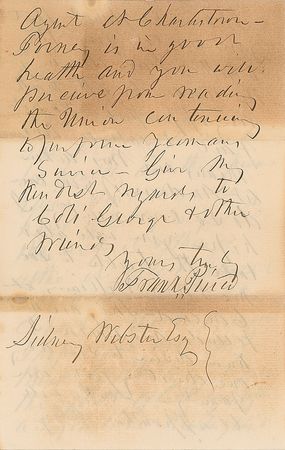 Agent at Charlestown –
Forney is in good
health and you will
perceive from reading
the Union continuing
to perform yeomans
Service – Give my
kindest regards to
Col. George & other
friends
yours truly
Frank. Pierce
Sidney Webster Esq